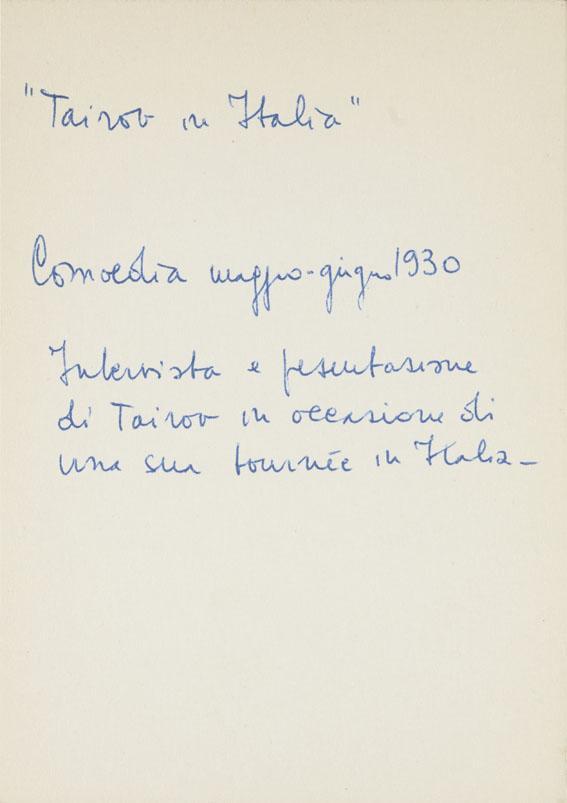 "Tairov in Italia"
Comoedia maggio-giugno 1930
Intervista e presentazione
di Tairov in occasione di
una sua tournée in Italia_